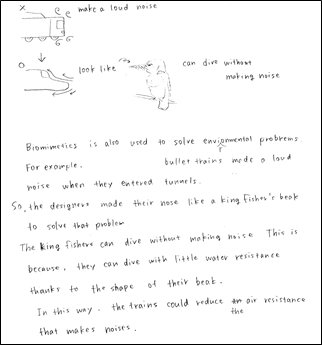 x
make a loud noise
o
look like
can dive without
making noise
Biomimetics is also used to solve envionmental problems
For example, bullet trains made a loud
noise when they entered tunnels.
So, the designers made their nose like a king fisher's beak
to solve that problem
The king fishers can dive without making noise This is
because, they can dive with little water resistance
thanks to the shape of their beak.
In this way, the trains could reduce an air resistance
the
that makes noises.